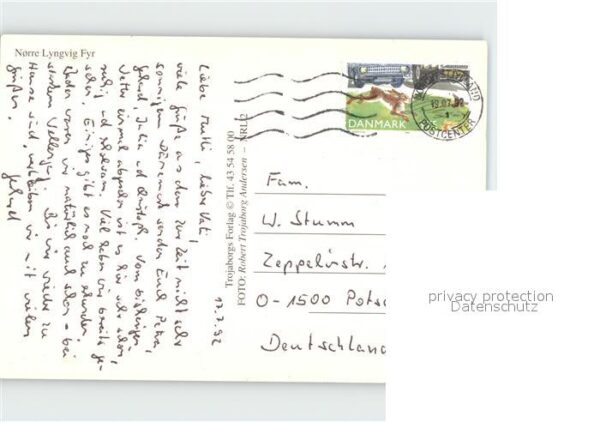 Nørre Lyngvig Fyr
17.7.92
Liebe Mutti, lieber Vati,
viele Grüße aus dem zur Zeit nicht sehr
sonnigen Dänemark senden Euch Petra,
Gerhard, Julia und Christoph. Vom bisherigen
Wetter einmal abgesehen ist es hier sehr schön,
ruhig und erholsam. Viel haben wir bereits ge-
sehen. Einiges gibt es noch zu erkunden.
Baden waren wir natürlich auch schon - bei
starkem Wellengang. Bis wir wieder zu
Hause sind, verbleiben wir mit vielen
Grüßen.
Gerhard
Trojaborgs Forlag © Tlf. 43 54 58 00
FOTO: Robert Trojaborg Andersen
DANMARK
POSTCENTER
19.07.92
Fam.
W. Stumm
Zeppelinstr.
O-1500 Pots
Deutschland
privacy protection
Datenschutz